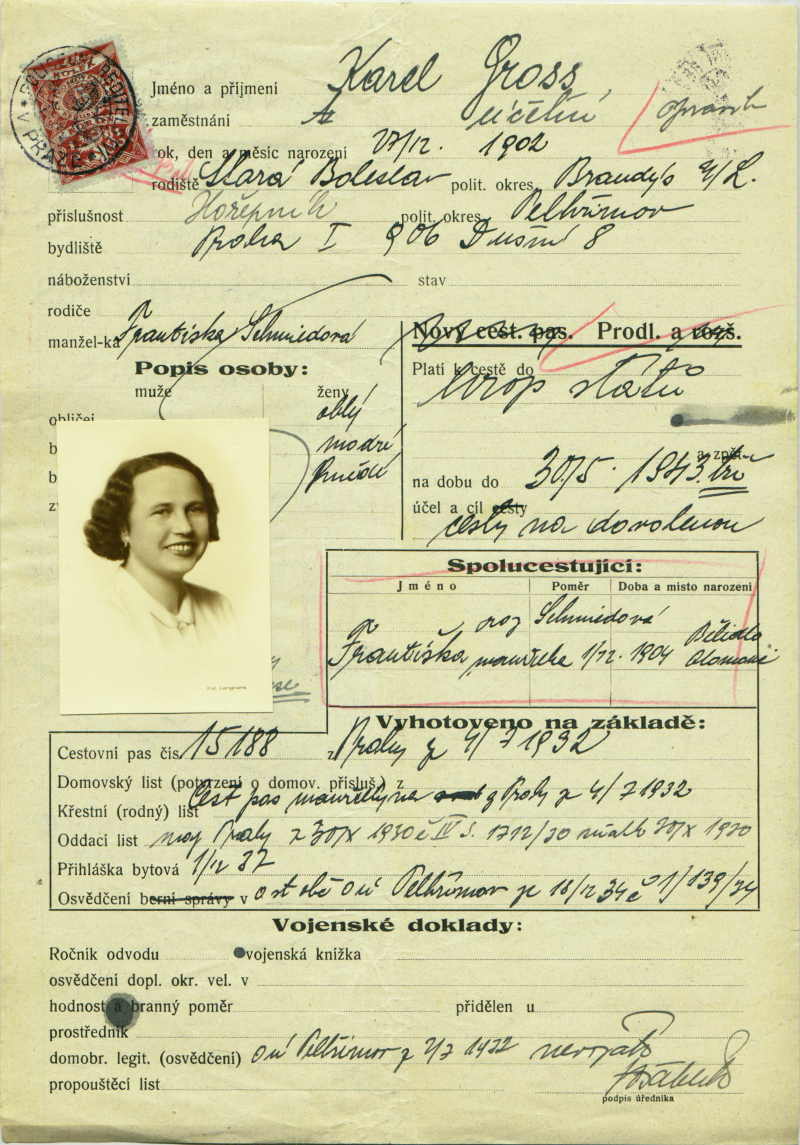 Jméno a příjmení Karel Gross
zaměstnání účetní
rok, den a měsíc narození 27/12. 1902
rodiště Stará Boleslav polit. okres Brandýs n/L.
příslušnost Hořepník polit. okres Pelhřimov
bydliště Praha I 906 Dušní 8
náboženství stav
rodiče
manžel-ka Františka Schmiedová
Nový cest. pas. Prodl. a rozš.
Popis osoby:
Platí k cestě do evrop států
muže ženy
obličej oblý
modré
hnědé
a zpět
na dobu do 30/5. 1943. tři
účel a cíl cesty
cesty na dovolenou
Spolucestující:
Jméno Poměr Doba a místo narození
roz Schmiedová
Františka manželka 1/12. 1904 Bělidla Olomouc
Vyhotoveno na základě:
Cestovní pas čís. 15188 z Prahy z 4/7 1932
Domovský list (potvrzení o domov. přísluš.) z
Křestní (rodný) list Cest pas manželky na z Prahy ze 4/7 1932
Oddací list mag Prahy z 30/X 1930 č IV S. 1712/30 30/X 1930
Přihláška bytová 1/12 37
Osvědčení berní správy v o st obč Pelhřimov ze 18/12 34 č 1/139/34
Vojenské doklady:
Ročník odvodu vojenská knížka
osvědčení dopl. okr. vel. v
hodnost a branný poměr přidělen u
prostředník
domobr. legit. (osvědčení) Pelhřimov z
propouštěcí list
podpis úředníka